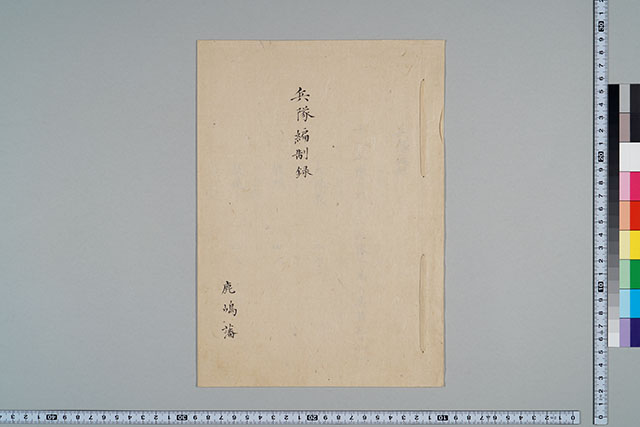 兵隊編制録
鹿嶋藩